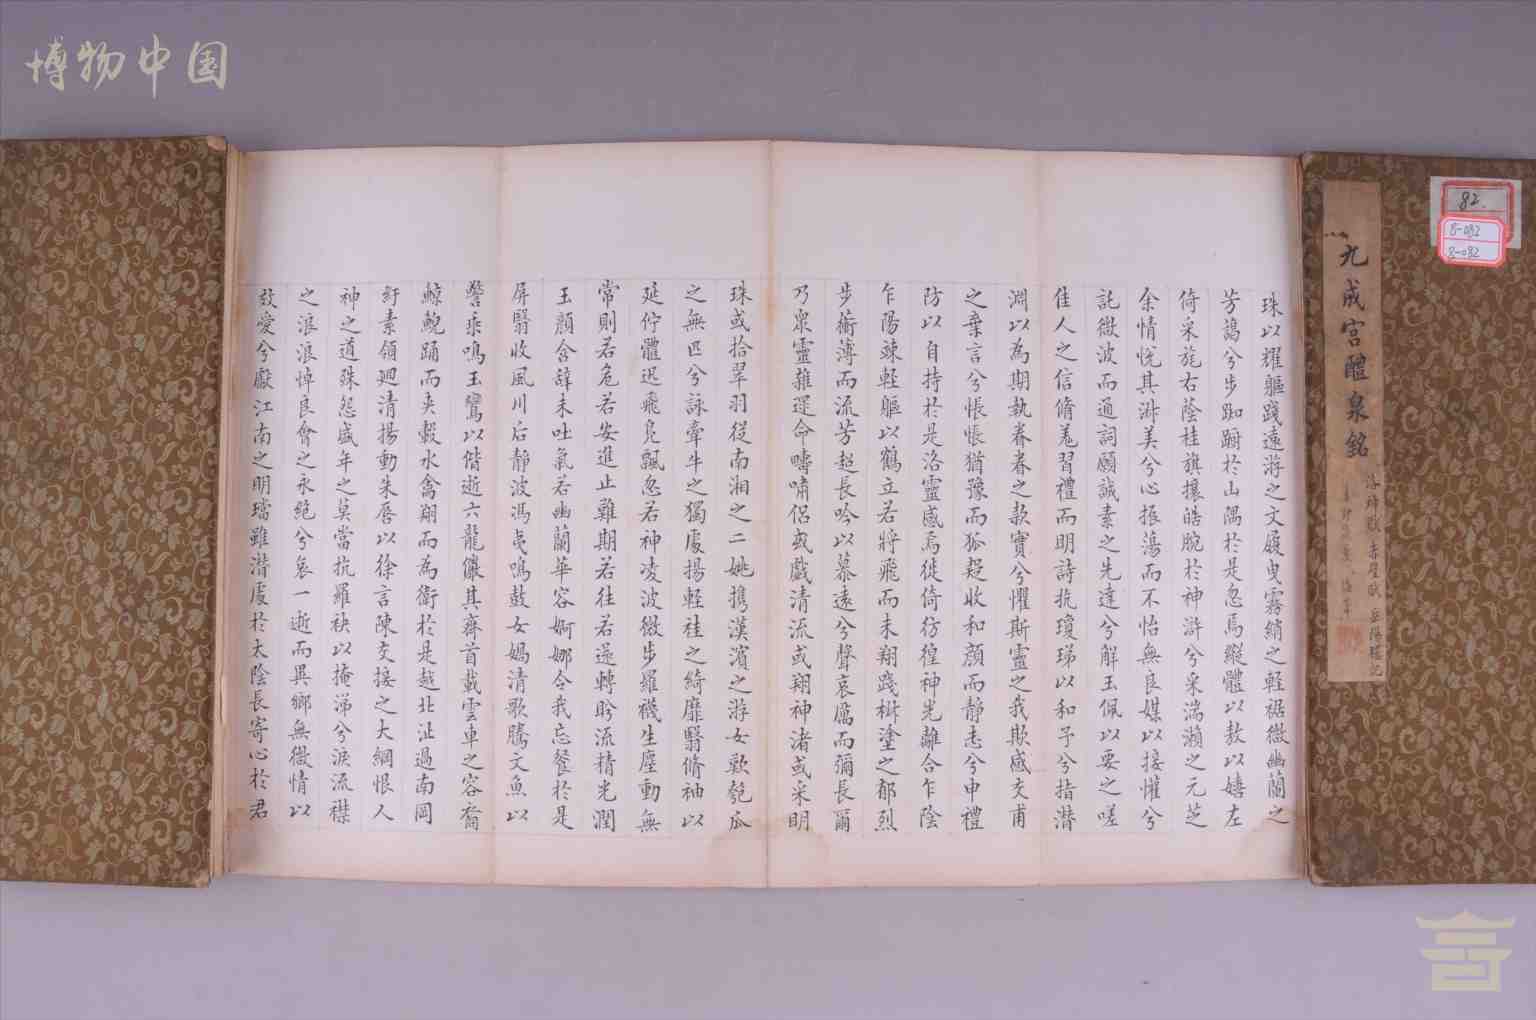 博物中国
82.
8-082
8-082
九成宮醴泉銘
洛神賦 赤壁賦 岳陽樓記
珠以耀軀踐遠游之文履曳霧綃之輕裾微幽蘭之
芳藹兮步踟蹰於山隅於是忽焉縱體以敖以嬉左
倚采旄右蔭桂旗攘皓腕於神滸兮采湍瀨之元芝
余情恱其淑美兮心振蕩而不怡無良媒以接懽兮
託微波而通詞願誠素之先達兮解玉佩以要之嗟
佳人之信脩羌習禮而明詩抗瓊珶以和予兮指潛
淵以為期執眷眷之款實兮懼斯靈之我欺感交甫
之棄言兮悵悵猶豫而狐疑收和顏而靜志兮申禮
防以自持於是洛靈感焉徙倚彷徨神光離合乍陰
乍陽竦輕軀以鶴立若將飛而未翔踐椒塗之郁烈
步蘅薄而流芳超長吟以慕遠兮聲哀厲而彌長爾
乃衆靈雜遝命疇嘯侶或戲清流或翔神渚或采明
珠或拾翠羽從南湘之二姚攜漢濱之游女歎匏瓜
之無匹兮詠牽牛之獨處揚輕袿之綺靡翳脩袖以
延佇體迅飛鳧飄忽若神凌波微步羅襪生塵動無
常則若危若安進止難期若往若還轉眄流精光潤
玉顏含辭未吐氣若幽蘭華容婀娜令我忘餐於是
屏翳收風川后靜波馮夷鳴鼓女媧清歌騰文魚以
警乘鳴玉鸞以偕逝六龍儼其齊首載雲車之容裔
鯨鯢踊而夾轂水禽翔而為衛於是越北沚過南岡
紆素領迴清揚動朱唇以徐言陳交接之大綱恨人
神之道殊怨盛年之莫當抗羅袂以掩涕兮淚流襟
之浪浪悼良會之永絕兮哀一逝而異鄉無微情以
效愛兮獻江南之明璫雖潛處於太陰長寄心於君